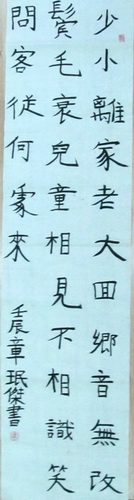 少小離家老大回鄉音無改
鬢毛衰兒童相見不相識笑
問客從何處來
壬辰章珉傑書